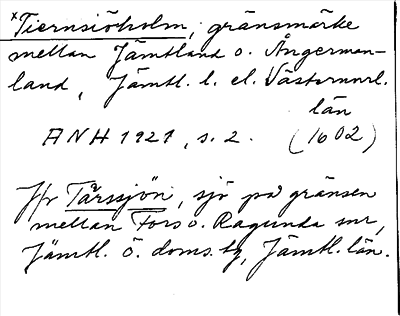 *Tiernsiöholm, gränsmärke
mellan Jämtland o. Ångerman-
land, Jämtl. l. el. Västernorrl.
län
ANH 1921, s. 2. (1602)
Jfr Tårssjön, sjö på gränsen
mellan Fors o. Ragunda snr,
Jämtl. ö. doms. tg, Jämtl. län.